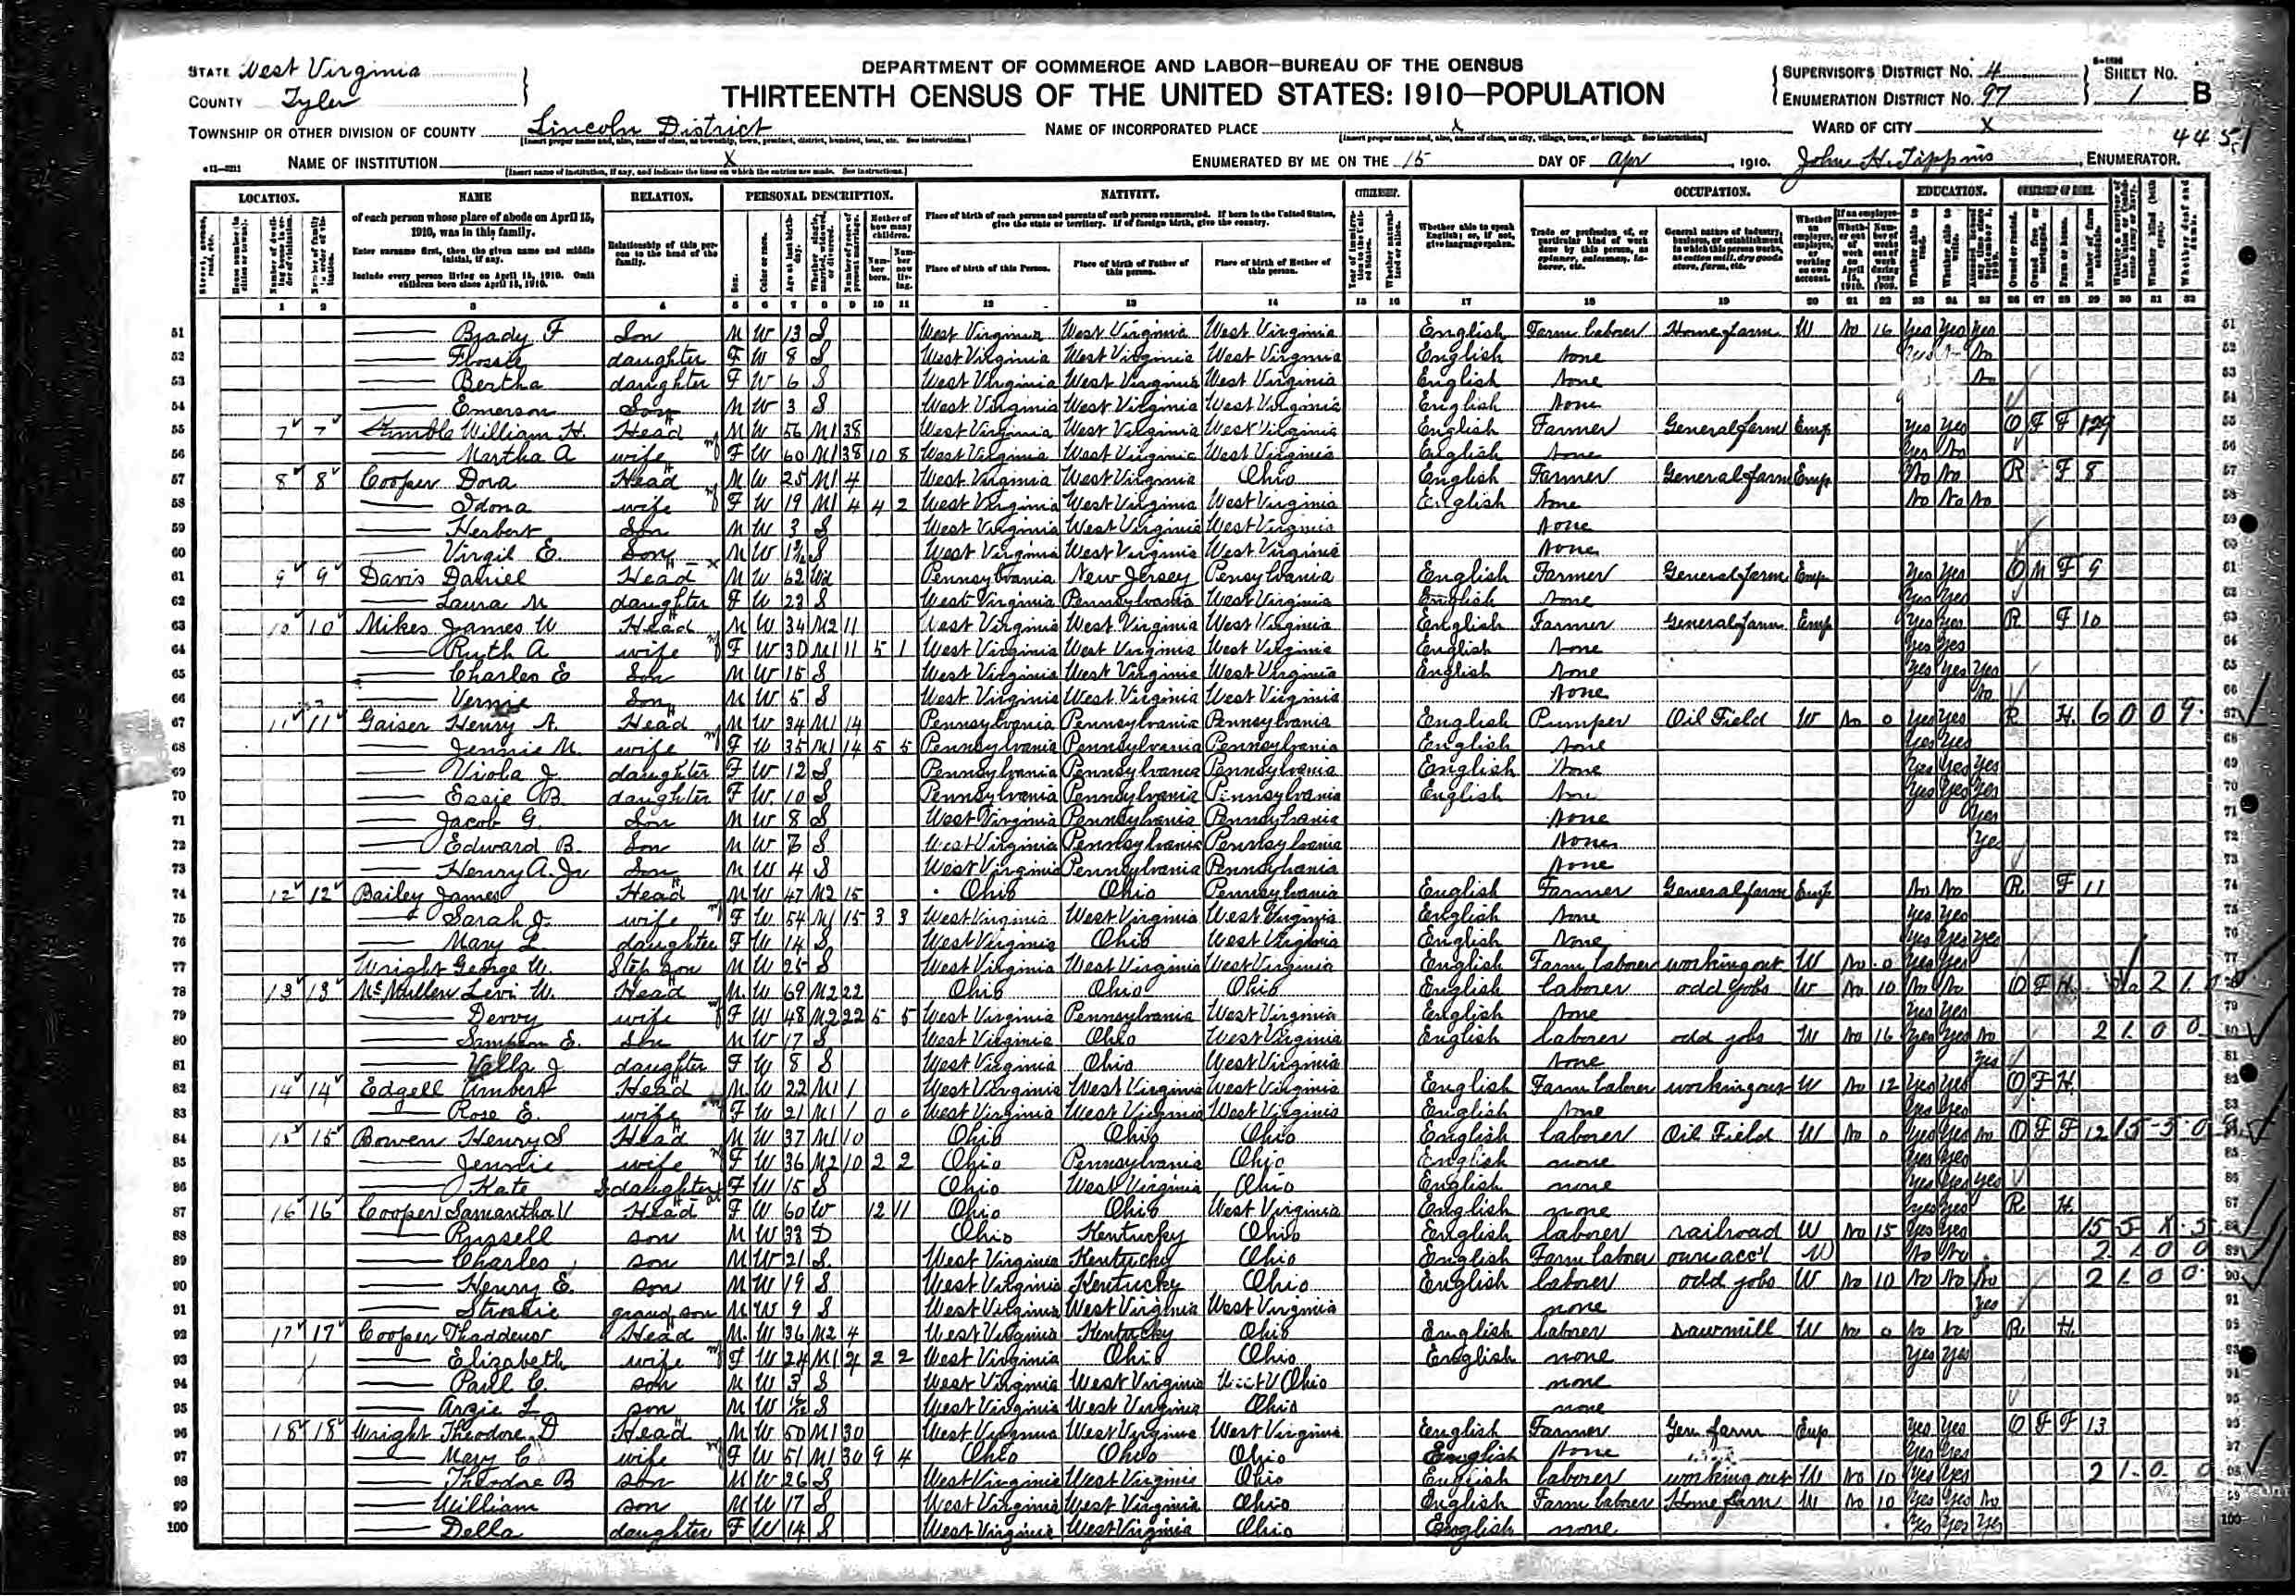 DEPARTMENT OF COMMERCE AND LABOR—BUREAU OF THE CENSUS
THIRTEENTH CENSUS OF THE UNITED STATES: 1910—POPULATION
STATE West Virginia
COUNTY Tyler
SUPERVISOR'S DISTRICT No. 4
ENUMERATION DISTRICT No. 97
SHEET No. 1 B
4451
TOWNSHIP OR OTHER DIVISION OF COUNTY Lincoln District
NAME OF INCORPORATED PLACE X
WARD OF CITY X
NAME OF INSTITUTION X
ENUMERATED BY ME ON THE 15 DAY OF Apr, 1910. John H. Tippins, ENUMERATOR.
LOCATION. NAME RELATION. PERSONAL DESCRIPTION. NATIVITY. CITIZENSHIP. OCCUPATION. EDUCATION. OWNERSHIP OF HOME.
of each person whose place of abode on April 15, 1910, was in this family.
Enter surname first, then the given name and middle initial, if any.
Include every person living on April 15, 1910. Omit children born since April 15, 1910.
Relationship of this person to the head of the family.
Place of birth of each person and parents of each person enumerated. If born in the United States, give the state or territory. If of foreign birth, give the country.
Place of birth of this Person. Place of birth of Father of this person. Place of birth of Mother of this person.
Whether able to speak English; or, if not, give language spoken.
1 2 3 4 5 6 7 8 9 10 11 12 13 14 15 16 17 18 19 20 21 22 23 24 25 26 27 28 29 30 31 32
51 Brady F Son M W 13 S West Virginia West Virginia West Virginia English Farm laborer Home farm W No 16 Yes Yes Yes
52 Flossie daughter F W 8 S West Virginia West Virginia West Virginia English None No
53 Bertha daughter F W 6 S West Virginia West Virginia West Virginia English None No
54 Emerson Son M W 3 S West Virginia West Virginia West Virginia English None
55 7 7 William H. Head M W 56 M1 38 West Virginia West Virginia West Virginia English Farmer General farm Emp Yes Yes O F F 129
56 Martha A wife F W 60 M1 38 10 8 West Virginia West Virginia West Virginia English None Yes No
57 8 8 Cooper Dora Head M W 25 M1 4 West Virginia West Virginia Ohio English Farmer General farm Emp No No R F 8
58 Idona wife F W 19 M1 4 4 2 West Virginia West Virginia West Virginia English None No No No
59 Herbert Son M W 3 S West Virginia West Virginia West Virginia None
60 Virgil E. Son M W S West Virginia West Virginia West Virginia None
61 9 9 Davis Daniel Head M W 62 Wd Pennsylvania New Jersey Pensylvania English Farmer General farm Emp Yes Yes O M F 9
62 Laura M daughter F W 23 S West Virginia Pennsylvania West Virginia English None Yes Yes
63 10 10 Mikes James W Head M W 34 M2 11 West Virginia West Virginia West Virginia English Farmer General farm Emp Yes Yes R F 10
64 Ruth A wife F W 30 M1 11 5 1 West Virginia West Virginia West Virginia English None Yes Yes
65 Charles E Son M W 15 S West Virginia West Virginia West Virginia English None Yes Yes Yes
66 Vernie Son M W 5 S West Virginia West Virginia West Virginia None No
67 11 11 Gaiser Henry A. Head M W 34 M1 14 Pennsylvania Pennsylvania Pennsylvania English Pumper Oil Field W No 0 Yes Yes R H. 6 0 0 9
68 Jennie M. wife F W 35 M1 14 5 5 Pennsylvania Pennsylvania Pennsylvania English None Yes Yes
69 Viola J daughter F W 12 S Pennsylvania Pennsylvania Pennsylvania English None Yes Yes Yes
70 Essie B. daughter F W 10 S Pennsylvania Pennsylvania Pennsylvania English None Yes Yes Yes
71 Jacob G. Son M W 8 S West Virginia Pennsylvania Pennsylvania None Yes
72 Edward B. Son M W S West Virginia Pennsylvania Pennsylvania None Yes
73 Henry A. Jr Son M W 4 S West Virginia Pennsylvania Pennsylvania None
74 12 12 Bailey James Head M W 47 M2 15 Ohio Ohio Pennsylvania English Farmer General farm Emp No No R F 11
75 Sarah J. wife F W 54 M1 15 3 3 West Virginia West Virginia West Virginia English None Yes Yes
76 Mary L. daughter F W 14 S West Virginia Ohio West Virginia English None Yes Yes Yes
77 Wright George W. Step son M W 25 S West Virginia West Virginia West Virginia English Farm laborer working out W No 0 Yes Yes
78 13 13 McMullen Levi W. Head M. W 69 M2 22 Ohio Ohio Ohio English laborer odd jobs W No 10 No No O F H.
79 wife F W 48 M2 22 5 5 West Virginia Pennsylvania West Virginia English None Yes Yes
80 Sampson E. Son M W 17 S West Virginia Ohio West Virginia English laborer odd jobs W No 16 Yes Yes No 2 1 0 0
81 J daughter F W 8 S West Virginia Ohio West Virginia None Yes
82 14 14 Edgell Head M W 22 M1 1 West Virginia West Virginia West Virginia English Farm laborer working out W No 12 Yes Yes O F H.
83 Rose E. wife F W 21 M1 1 0 0 West Virginia West Virginia West Virginia English None Yes Yes
84 15 15 Bowen Henry S Head M W 37 M1 10 Ohio Ohio Ohio English laborer Oil Field W No 0 Yes Yes No O F F 12
85 Jennie wife F W 36 M2 10 2 2 Ohio Pennsylvania Ohio English none Yes Yes
86 Kate S daughter F W 15 S Ohio West Virginia Ohio English none Yes Yes Yes
87 16 16 Cooper Samantha V Head F W 60 W 12 11 Ohio Ohio West Virginia English none Yes Yes R H.
88 Russell son M W 33 D Ohio Kentucky Ohio English laborer railroad W No 15 Yes Yes
89 Charles son M W 21 S West Virginia Kentucky Ohio English Farm laborer own acc't W No No 2 1 0 0
90 Henry E. son M W 19 S West Virginia Kentucky Ohio English laborer odd jobs W No 10 No No No 2 1 0 0
91 grand son M W 9 S West Virginia West Virginia West Virginia none Yes
92 17 17 Cooper Thaddeus Head M. W 36 M2 4 West Virginia Kentucky Ohio English laborer sawmill W No 0 No No R. H.
93 Elizabeth wife F W 24 M1 4 2 2 West Virginia Ohio Ohio English none Yes Yes
94 Paul C. son M W 3 S West Virginia West Virginia Ohio none
95 L son M W S West Virginia West Virginia Ohio none
96 18 18 Wright Theodore D Head M W 50 M1 30 West Virginia West Virginia West Virginia English Farmer Gen farm Emp Yes Yes O F F 13
97 Mary C wife F W 51 M1 30 9 4 Ohio Ohio Ohio English None Yes Yes
98 Theodore B son M W 26 S West Virginia West Virginia Ohio English laborer working out W No 10 Yes Yes 2 1 0 0
99 William son M W 17 S West Virginia West Virginia Ohio English Farm laborer Home farm W No 10 Yes Yes No
100 Della daughter F W 14 S West Virginia West Virginia Ohio English none Yes Yes Yes